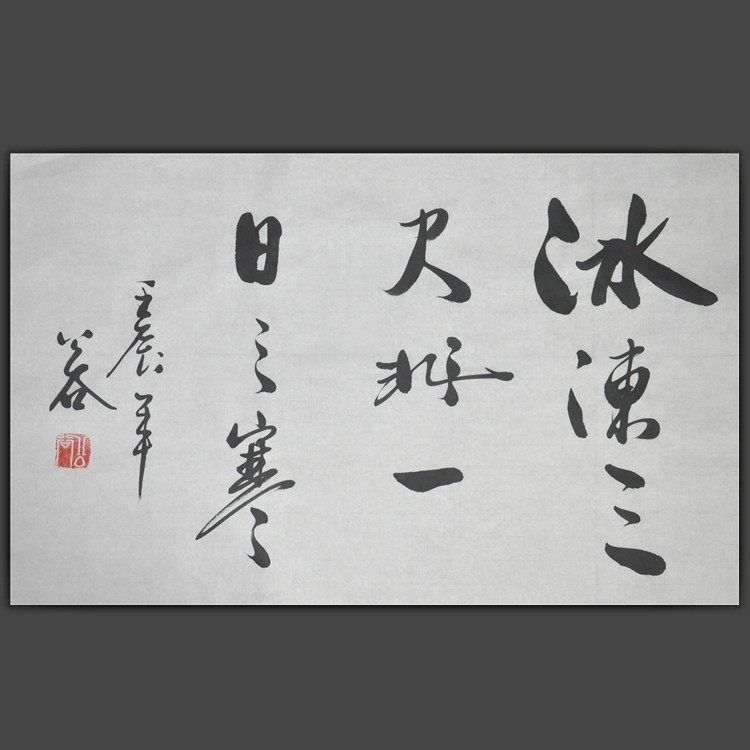 冰凍三
尺非一
日之寒
壬辰年